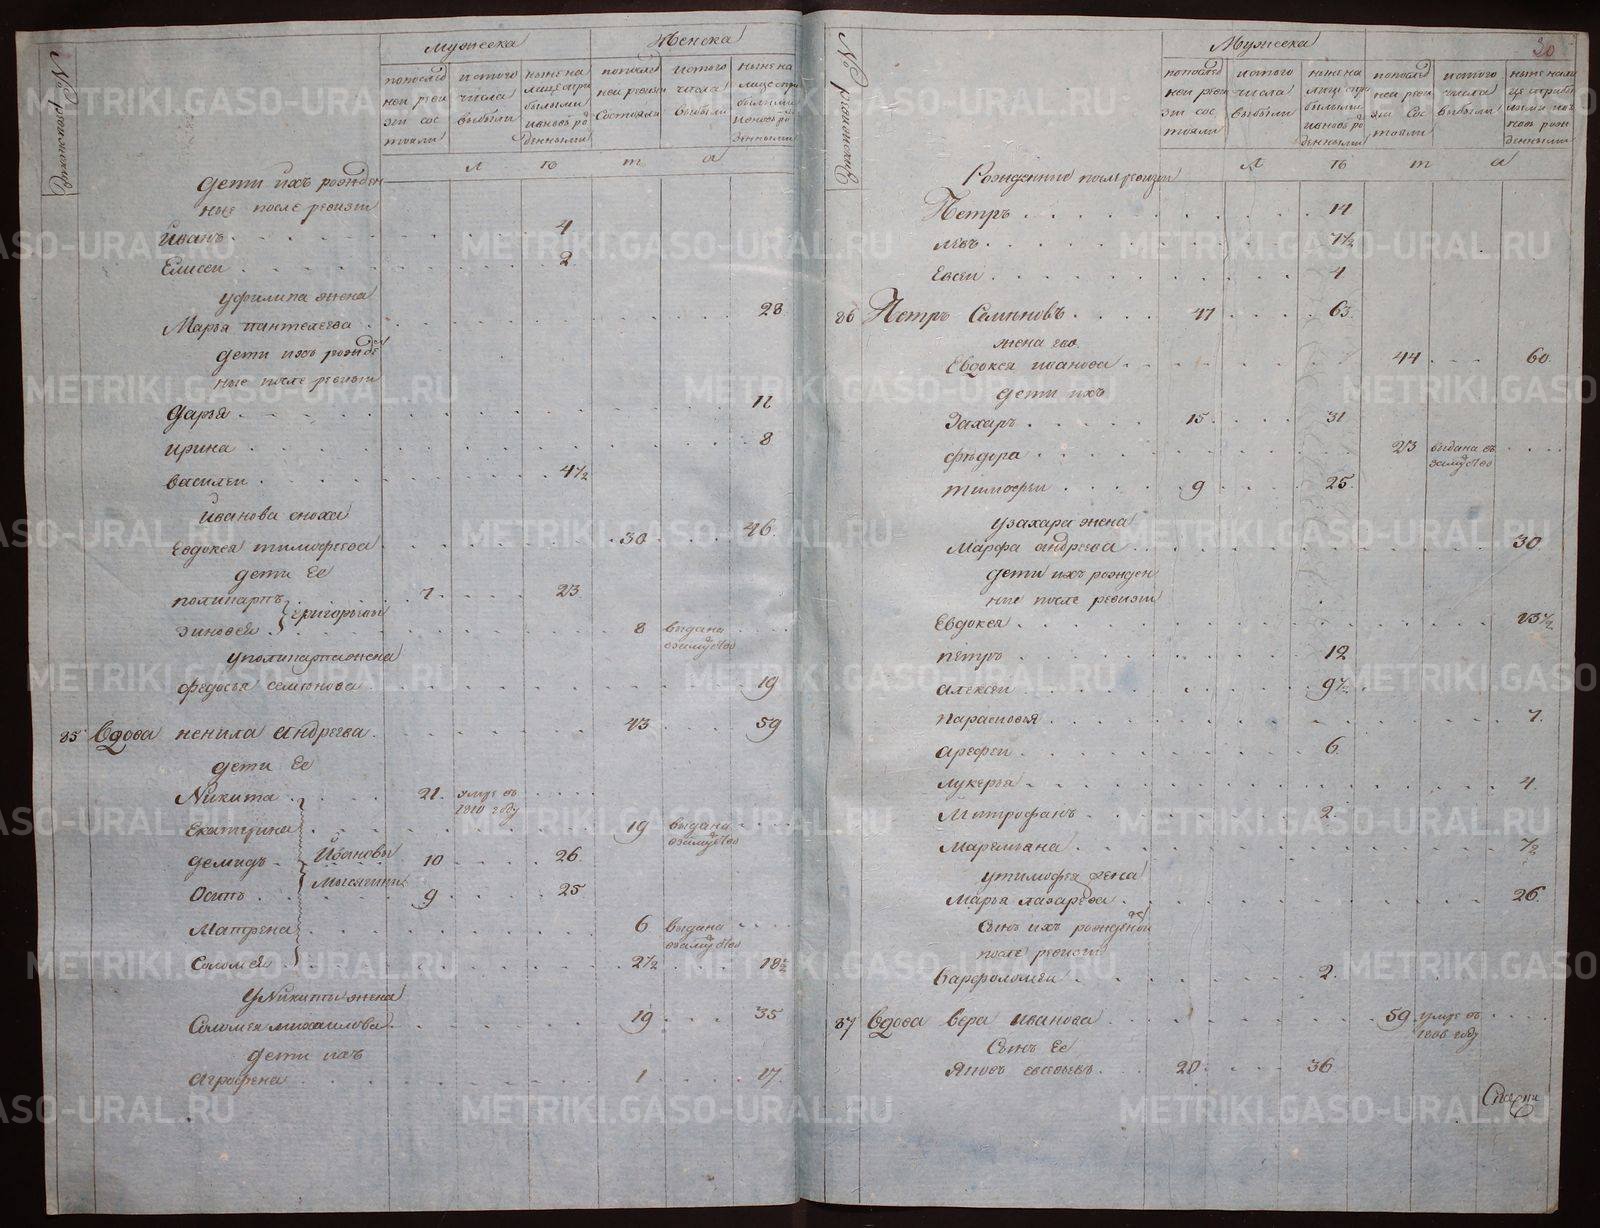 Мужеска Женска
попослед
ней реви
зіи сос
тояли
истого
числа
выбыли
ныне на
лице при
былыми
ивновь ро
жденными
попослед
ней ревизіи
состояли
истого
числа
выбыли
ныне на
лице при
былыми
ивновь ро
жденными
л ѣ т а
дети ихъ рожден
ные после ревизіи
Иванъ 4
Елисей 2
уфилипа жена
Марья пантелеева 28
дети ихъ рожде
ные после ревизіи
дарья 11
ирина 8
василей 4 1/2
Иванова сноха
Евдокея тимофеева 30 46
дети Ее
поликарпъ 7 23
григорьевы
зиновея 8 выдана
взамужство
уполикарпа жена
федосья семенова 19
85 вдова ненила андреева 43 59
дети Ее
Никита 21 умре въ
1810 году
Екатерина 19 выдана
взамужство
демидъ Ивановы 10 26
Осипъ 9 25
Матрена 6 выдана
взамужство
Соломея 2 1/2 18 1/2
у Никиты жена
Соломея михаилова 19 35
дети ихъ
аграфена 1 17
20
Мужеска
попослед
ней реви
зіи сос
тояли
истого
числа
выбыли
ныне на
лице при
былыми
ивновь ро
жденными
попослед
ней реви
зіи сос
тояли
истого
числа
выбыли
л ѣ т а
Рожденные после ревизіи
Петръ 14
левъ 7 1/2
Евсей 4
86 Петръ Семеновъ 47 63
жена его
Евдокея иванова 44 60
дети ихъ
Захаръ 15 31
федора 23 выдана въ
замужство
тимофей 9 25
узахара жена
Марфа андреева 30
дети ихъ рожден
ные после ревизіи
Евдокея 13 1/2
петръ 12
алексей 9 1/2
парасковья 7
арефей 6
лукерья 4
Митрофанъ 2
Маремьяна 1/2
утимофея жена
Марья лазарева 26
Сынъ ихъ рожденой
после ревизіи
варфоломей 2
87 вдова вера иванова 59 умре въ
1808 году
Сынъ Ее
Яковъ савельевъ 20 36
METRIKI.GASO-URAL.RU